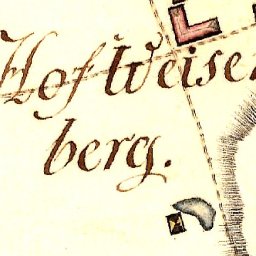 Hof Weisen
berg.